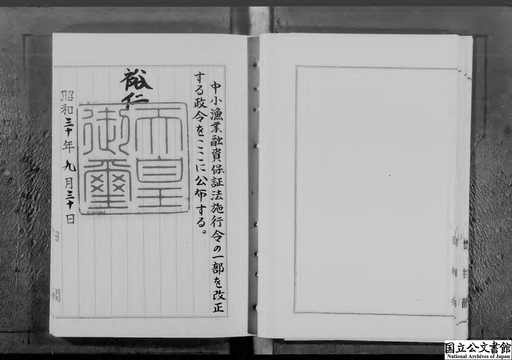 中小漁業融資保証法施行令の一部を改正
する政令をここに公布する。
裕仁
天皇
御璽
昭和三十年九月三十日
国立公文書館
National Archives of Japan